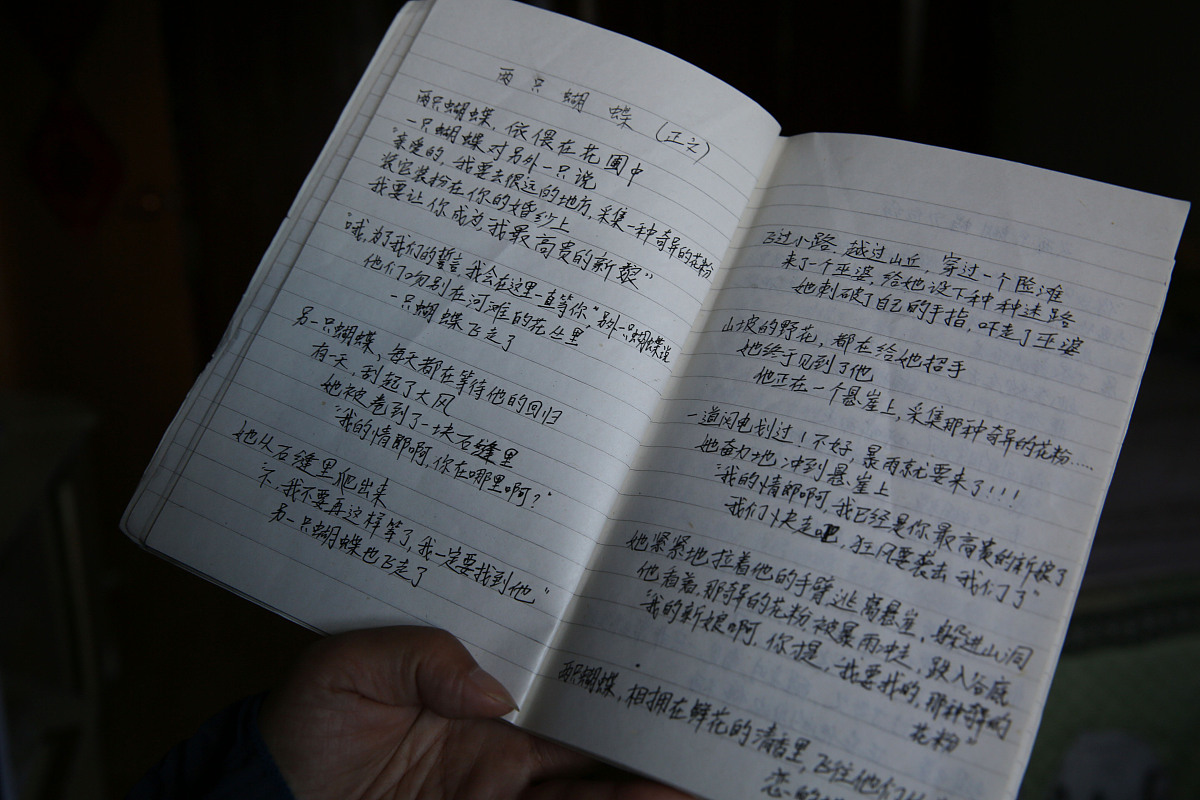 两只蝴蝶 (正文)
两只蝴蝶，依偎在花圃中
一只蝴蝶对另外一只说
"亲爱的，我要去很远的地方，采集一种奇异的花粉
装扮在你的婚纱上
我要让你成为，我最高贵的新娘"
"哦，为了我们的誓言，我会在这里一直等你"另外一只蝴蝶说
他们吻别在河滩的花丛里
一只蝴蝶飞走了
另一只蝴蝶，每天都在等待他的回归
有一天，刮起了大风
她被卷到了一块石缝里
"我的情郎啊，你在哪里啊？"
她从石缝里爬出来
"不，我不要再这样等了，我一定要找到他"
另一只蝴蝶也飞走了
飞过小路，越过山丘，穿过一个险滩
来了一个巫婆，给她设下种种迷路
她刺破了自己的手指，吓走了巫婆
山坡的野花，都在给她招手
她终于见到了他
他正在一个悬崖上，采集那种奇异的花粉……
一道闪电划过！不好，暴雨就要来了！！！
她奋力地，冲到悬崖上
"我的情郎啊，我已经是你最高贵的新娘了
我们快走吧，狂风要袭击我们了"
她紧紧地拉着他的手臂逃离悬崖，躲进山洞
他看着，那奇异的花粉，被暴雨冲走，跌入谷底
"我的新娘啊，你是，我要找的，那种奇异的
花粉"
两只蝴蝶，相拥在鲜花的清香里，飞往他们
恋的